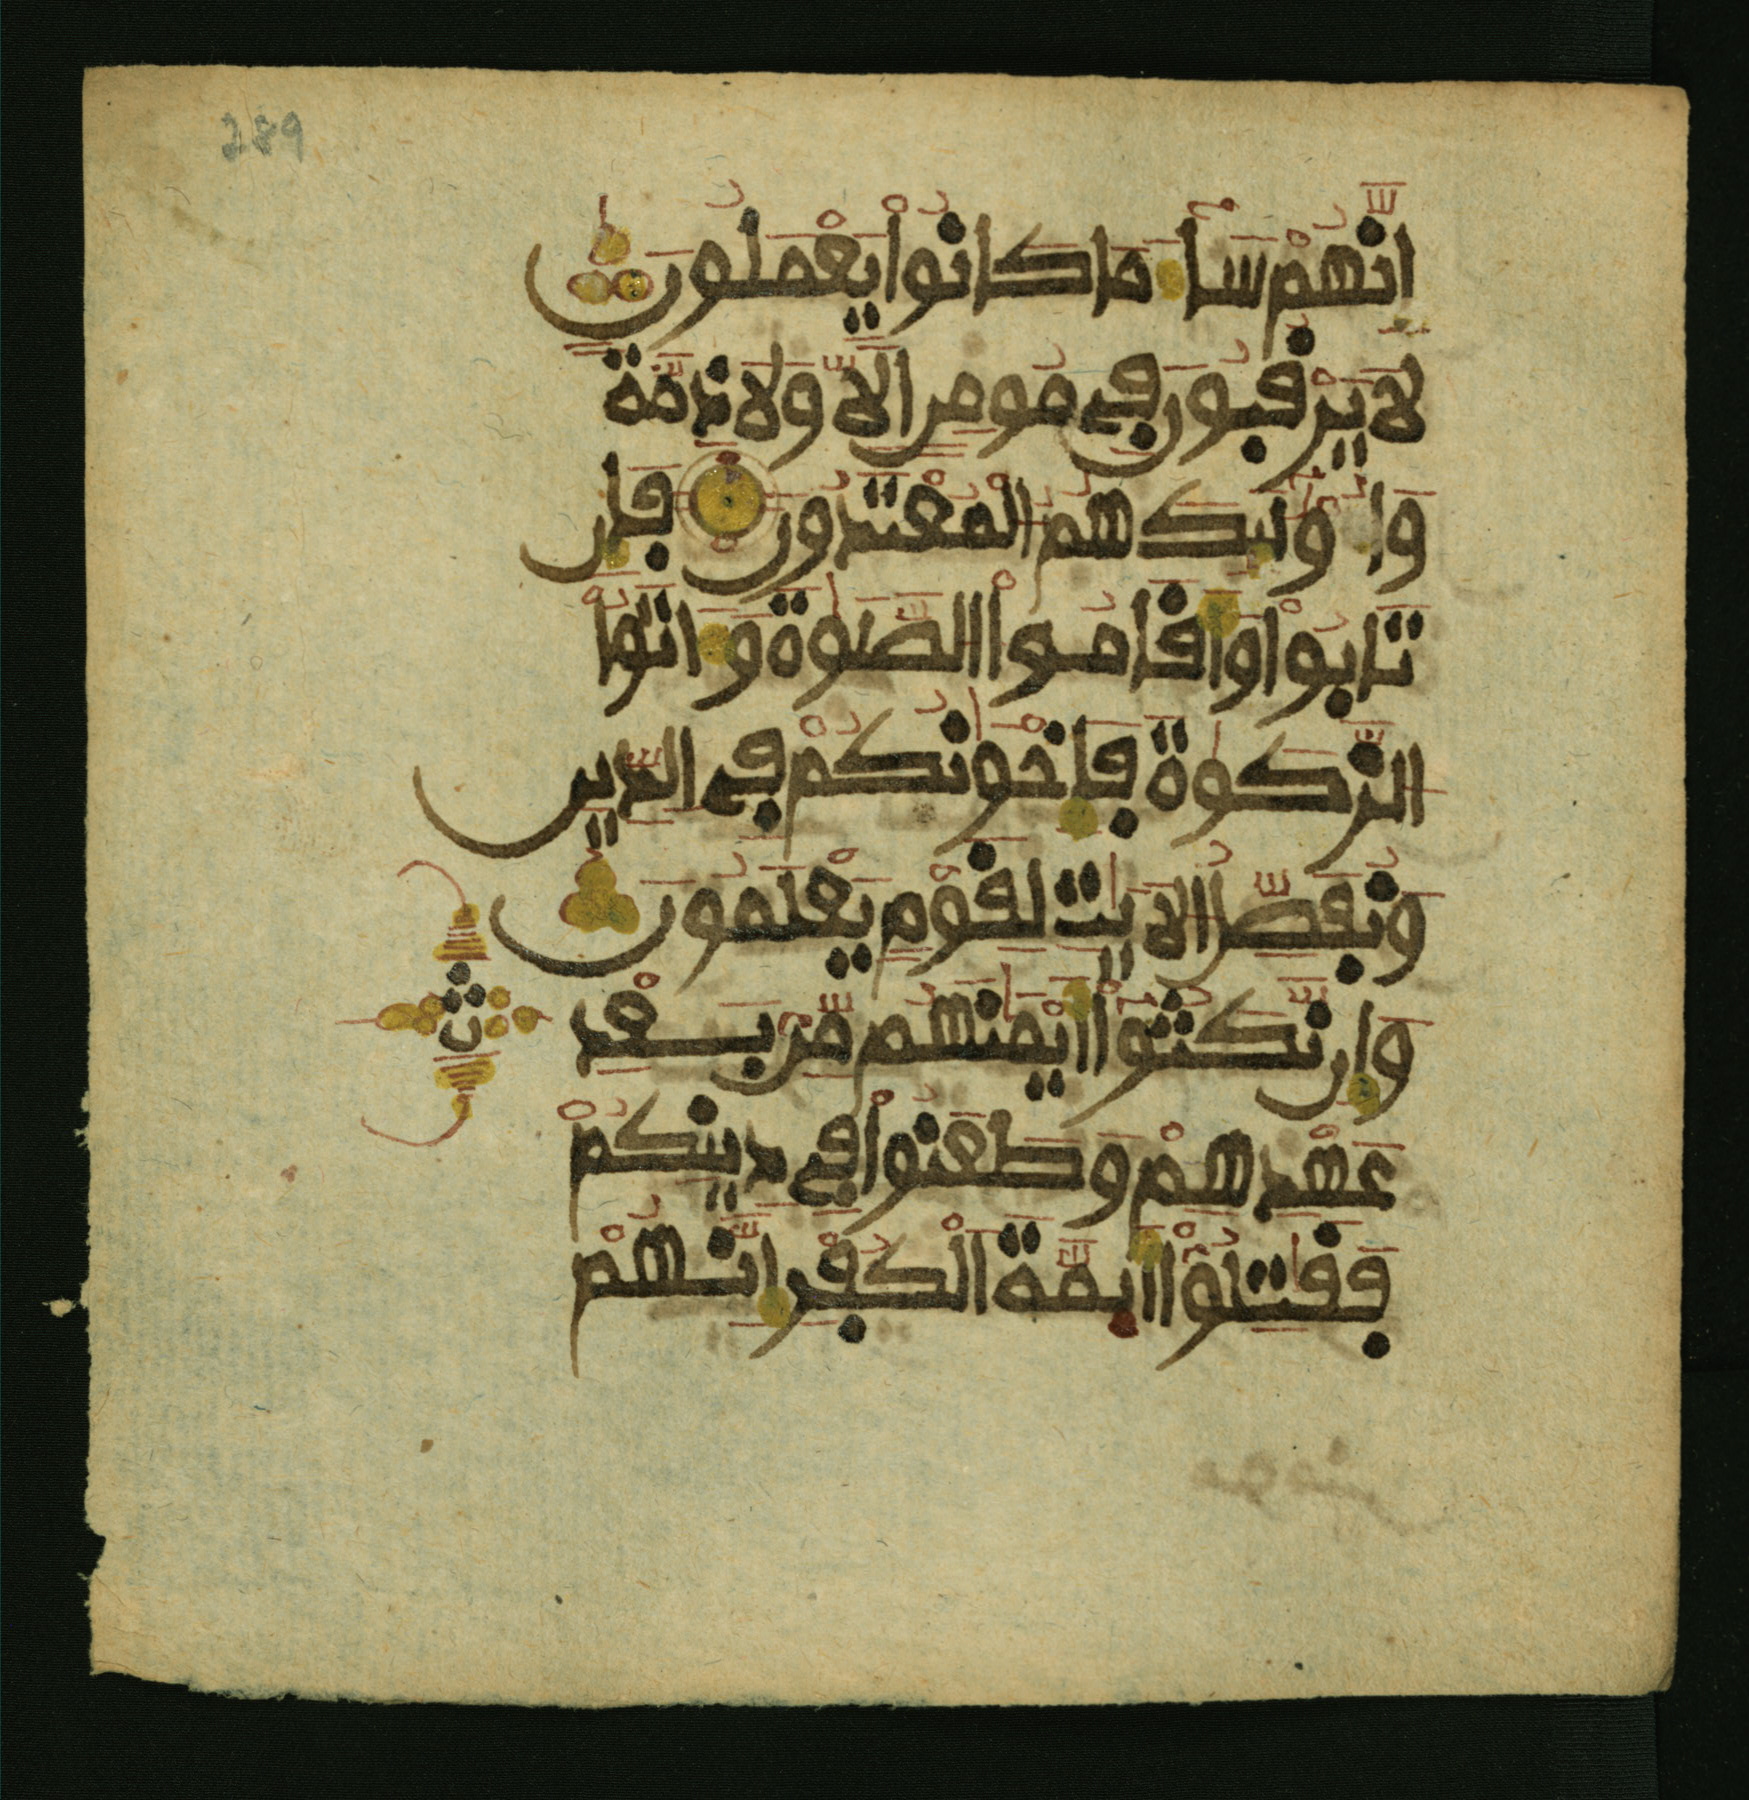 289
اِنَّهُمْ سَآءَ مَا كَانُواْ يَعْمَلُونَ
لَا يَرْقُبُونَ فِى مُومِنٍ اِلّاً وَلَا ذِمَّةً
وَأُوْلَٰٓئِكَ هُمُ الْمُعْتَدُونَ فَإِن
تَابُواْ وَأَقَامُواْ الصَّلَوٰةَ وَءَاتَوُاْ
الزَّكَوٰةَ فَإِخْوَٰنُكُمْ فِى الدِّينِ
وَنُفَصِّلُ الَايَٰتِ لِقَوْمٍ يَعْلَمُونَ
وَإِن نَّكَثُوٓاْ أَيْمَٰنَهُم مِّنۢ بَعْدِ
ن
عَهْدِهِمْ وَطَعَنُواْ فِى دِينِكُمْ
فَقَٰتِلُوٓاْ أَيِمَّةَ الْكُفْرِ إِنَّهُمْ